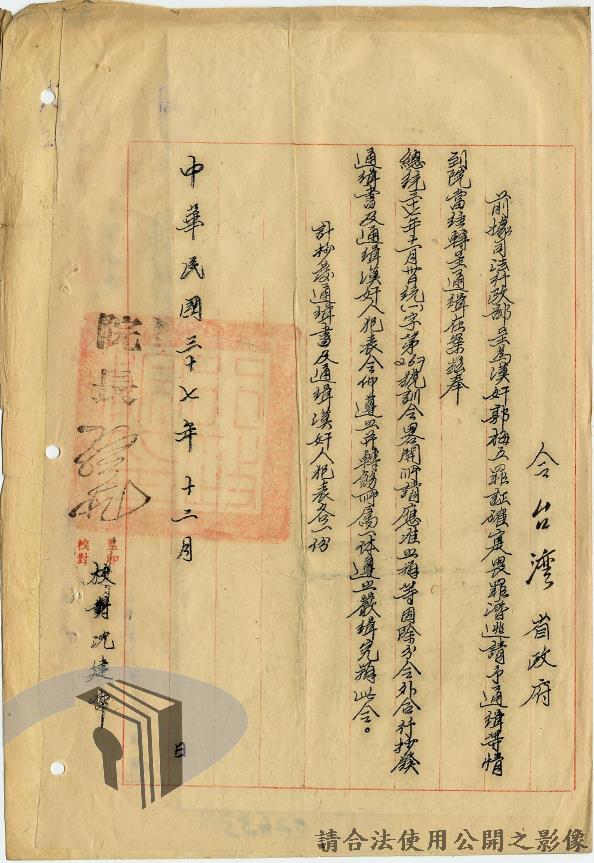 令台灣省政府
前據司法行政部呈為漢奸郭梅五罪証確實畏罪潛逃請予通緝等情
到院當經轉呈通緝在案茲奉
總統三十七年十一月廿日統(八)字第269號訓令畧開所請應准照辦等因除分令外合行抄發
通緝書及通緝漢奸人犯表令仰遵照并轉飭所屬一体遵照嚴緝究辦此令。
計抄發通緝書及通緝漢奸人犯表各一份
院長
中華民國三十七年十二月 日
監印
校對
校對沈建
請合法使用公開之影像